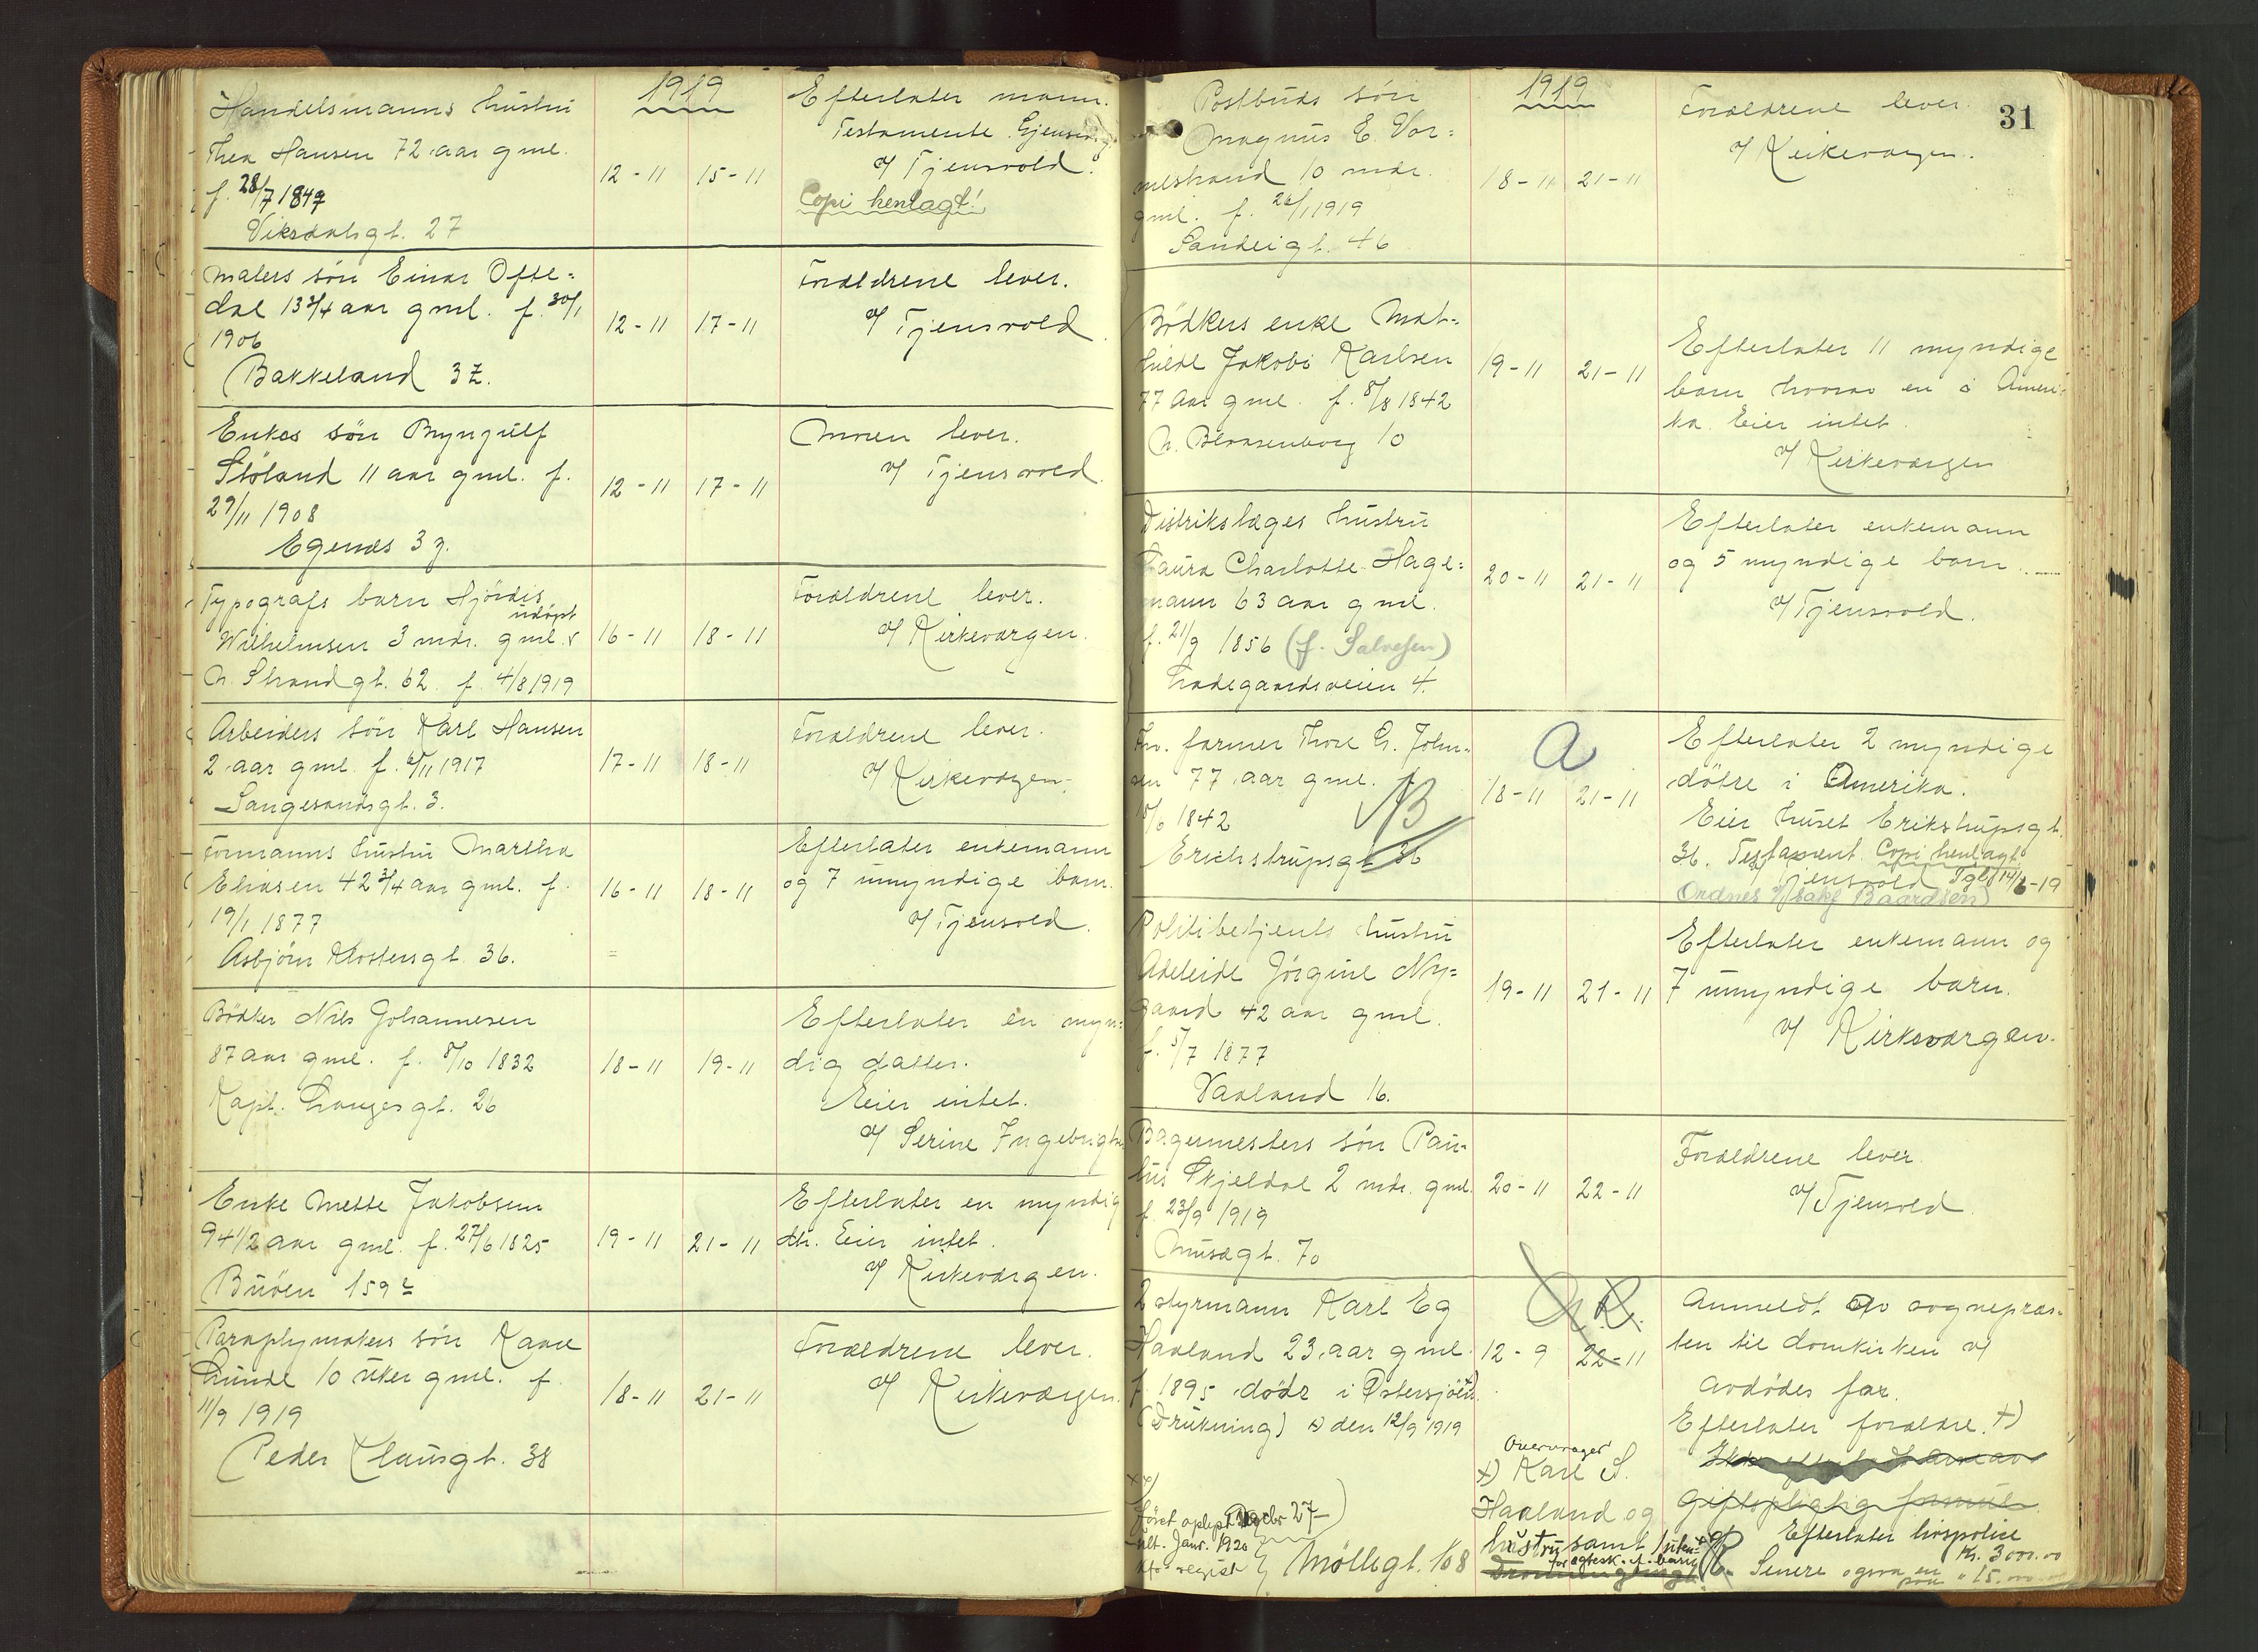 1919
Handelsmanns hustru
Thea Hansen 72 aar gml.
f. 28/7 1847
Viksdalsgt. 27
12-11 15-11
Efterlater mann.
Testamente.
v/ Tjensvold.
Copi henlagt!
Malers sön Einar Ofte=
dal 13 3/4 aar gml. f. 30/1
1906
Bakkeland 3 Z.
12-11 17-11
Foraeldrene lever.
v/ Tjensvold
Enkes sön Bryngulf
Stöland 11 aar gml. f.
29/11 1908
Egenes 3 z.
12-11 17-11
Moren lever.
v/ Tjensvold.
Typografs barn Hjördis
udöpt
Wilhelmsen 3 mdr. gml.
N. Strandgt. 62. f. 4/8 1919
16-11 18-11
Foraeldrene lever.
v/ Kirkevaergen.
Arbeiders sön Karl Hansen
2 aar gml. f. 6/11 1917
Langesandsgt. 3.
17-11 18-11
Foraeldrene lever.
v/ Kirkevaergen.
Formanns hustru Martha
Eliasen 42 3/4 aar gml. f.
19/1 1877
Asbjörn Klostersgt. 36.
16-11 18-11
Efterlater enkemann
og 7 umyndige barn.
v/ Tjensvold.
Bödker Nils Johannesen
87 aar gml. f. 8/10 1832
Kapt. Langesgt. 26
18-11 19-11
Efterlater en myn=
dig datter.
Eier intet.
v/ Serine Ingebrigts
Enke Mette Jakobsen
94 1/2 aar gml. f. 27/6 1825
Buöen 159 r
19-11 21-11
Efterlater en myndig
dtr. Eier intet.
v/ Kirkevaergen.
Paraplymakers sön Kaare
Lunde 10 uker gml. f.
11/9 1919
Peder Clausgt. 38
18-11 21-11
Foraeldrene lever.
v/ Kirkevaergen.
31
1919
Postbuds sön
Magnus E. Vor=
mestrand 10 mdr.
gml. f. 26/1 1919
Sandeigt. 46
18-11 21-11
Foraeldrene lever.
v/ Kirkevaergen.
Bödkers enke Mat=
hilde Jakobi Karlsen
77 aar gml. f. 8/8 1842
N. Blaasenborg 10
19-11 21-11
Efterlater 11 myndige
barn hvorav en i Ameri=
ka. Eier intet.
v/ Kirkevaergen
Distrikslaeges hustru
Laura Charlotte Hage=
mann 63 aar gml.
f. 21/9 1856 (f. Salvesen)
Ladegaardsveien 4.
20-11 21-11
Efterlater enkemann
og 5 myndige barn.
v/ Tjensvold.
Fv. farmer Thore G. John=
sen 77 aar gml. f.
1842
Erichstrupsgt 36
a
18-11 21-11
Efterlater 2 myndige
dötre i Amerika.
Eier huset Erikstrupsgt.
36. Testament. Copi henlagt
Tjensvold
Ordnes v/ sakf. Baardsen
Politibetjents hustru
Adeleide Jörgine Ny=
gaard 42 aar gml.
f. 5/7 1877
Vaaland 16.
19-11 21-11
Efterlater enkemann og
7 umyndige barn.
v/ Kirkevaergen.
Bagermesters sön Pau=
lus Skjeldal 2 mdr. gml.
f. 23/9 1919
Musaegt. 70
20-11 22-11
Foraeldrene lever.
v/ Tjensvold
2 styrmann Karl Eg
Haaland 23 aar gml.
f. 1895 döde i Østersjöen
(Drukning) den 12/9 1919
12-9 22-11
Anmeldt av sognepraes=
ten til domkirken v/
avdödes far.
Efterlater foraeldre. +)
+) Karl S.
Haaland og
hustru samt
Giftepligtig
Efterlater livspolice
Kr. 3000.00
Senere ogsaa en
paa " 15.000
Jan. 1920
Möllegt. 108